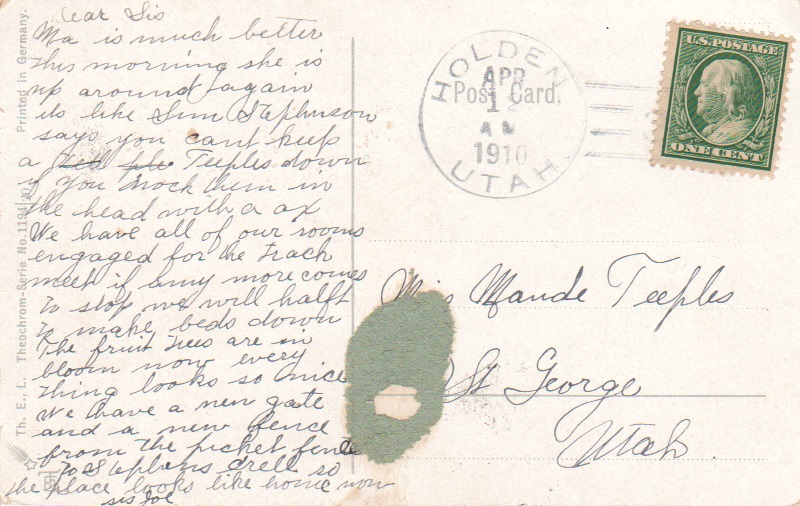 Dear Sis
Ma is much better
this morning she is
up around again
its like Sim Stephnson
says you cant keep
a Teeples down
if you knock them in
the head with a ax
We have all of our rooms
engaged for the Track
meet if anny more comes
to stop we will halft
to make beds down
The fruit trees are in
bloom now every
thing looks so nice
We have a new gate
and a new fence
from the picket fence
to Stephens crell so
the place looks like home now
sis Joe
Th. E., L. Theochrom-Serie No. 1194 Printed in Germany.
Post Card.
HOLDEN
APR
1
AM
1910
UTAH.
U.S. POSTAGE
ONE CENT
Miss Maude Teeples
St George
Utah.